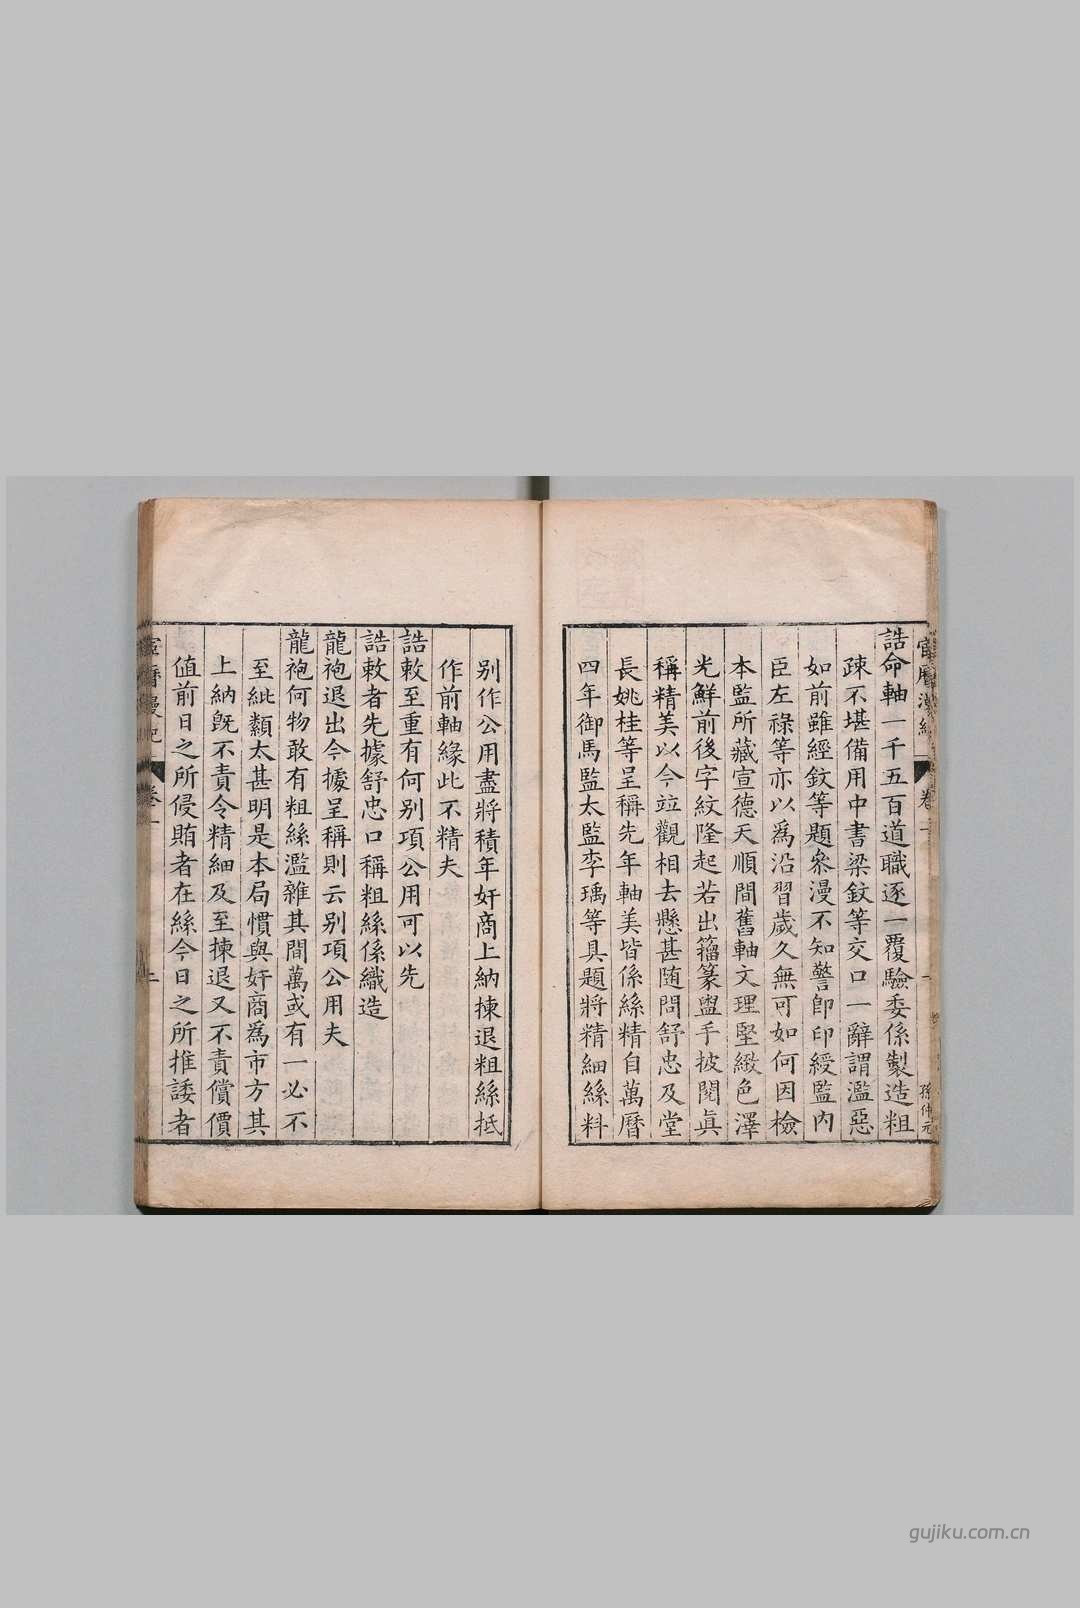 誥命軸一千五百道職逐一覆驗委係製造粗
疎不堪備用中書梁鈫等交口一辭謂濫惡
如前雖經鈫等題叅漫不知警卽印綬監內
臣左祿等亦以爲沿習歲久無可如何因檢
本監所藏宣德天順間舊軸文理堅緻色澤
光鮮前後字紋隆起若出籀篆盥手披閱眞
稱精美以今竝觀相去懸甚随問舒忠及堂
長姚桂等呈稱先年軸美皆係絲精自萬曆
四年御馬監太監李瑀等具題將精細絲料
别作公用盡將積年奸商上納揀退粗絲抵
作前軸緣此不精夫
誥敕至重有何别項公用可以先
誥敕者先據舒忠口稱粗絲係織造
龍袍退出今據呈稱則云别項公用夫
龍袍何物敢有粗絲濫雜其間萬或有一必不
至紕纇太甚明是本局慣與奸商爲市方其
上納旣不責令精細及至揀退又不責償價
値前日之所侵賄者在絲今日之所推諉者
孫仲元
gujiku.com.cn